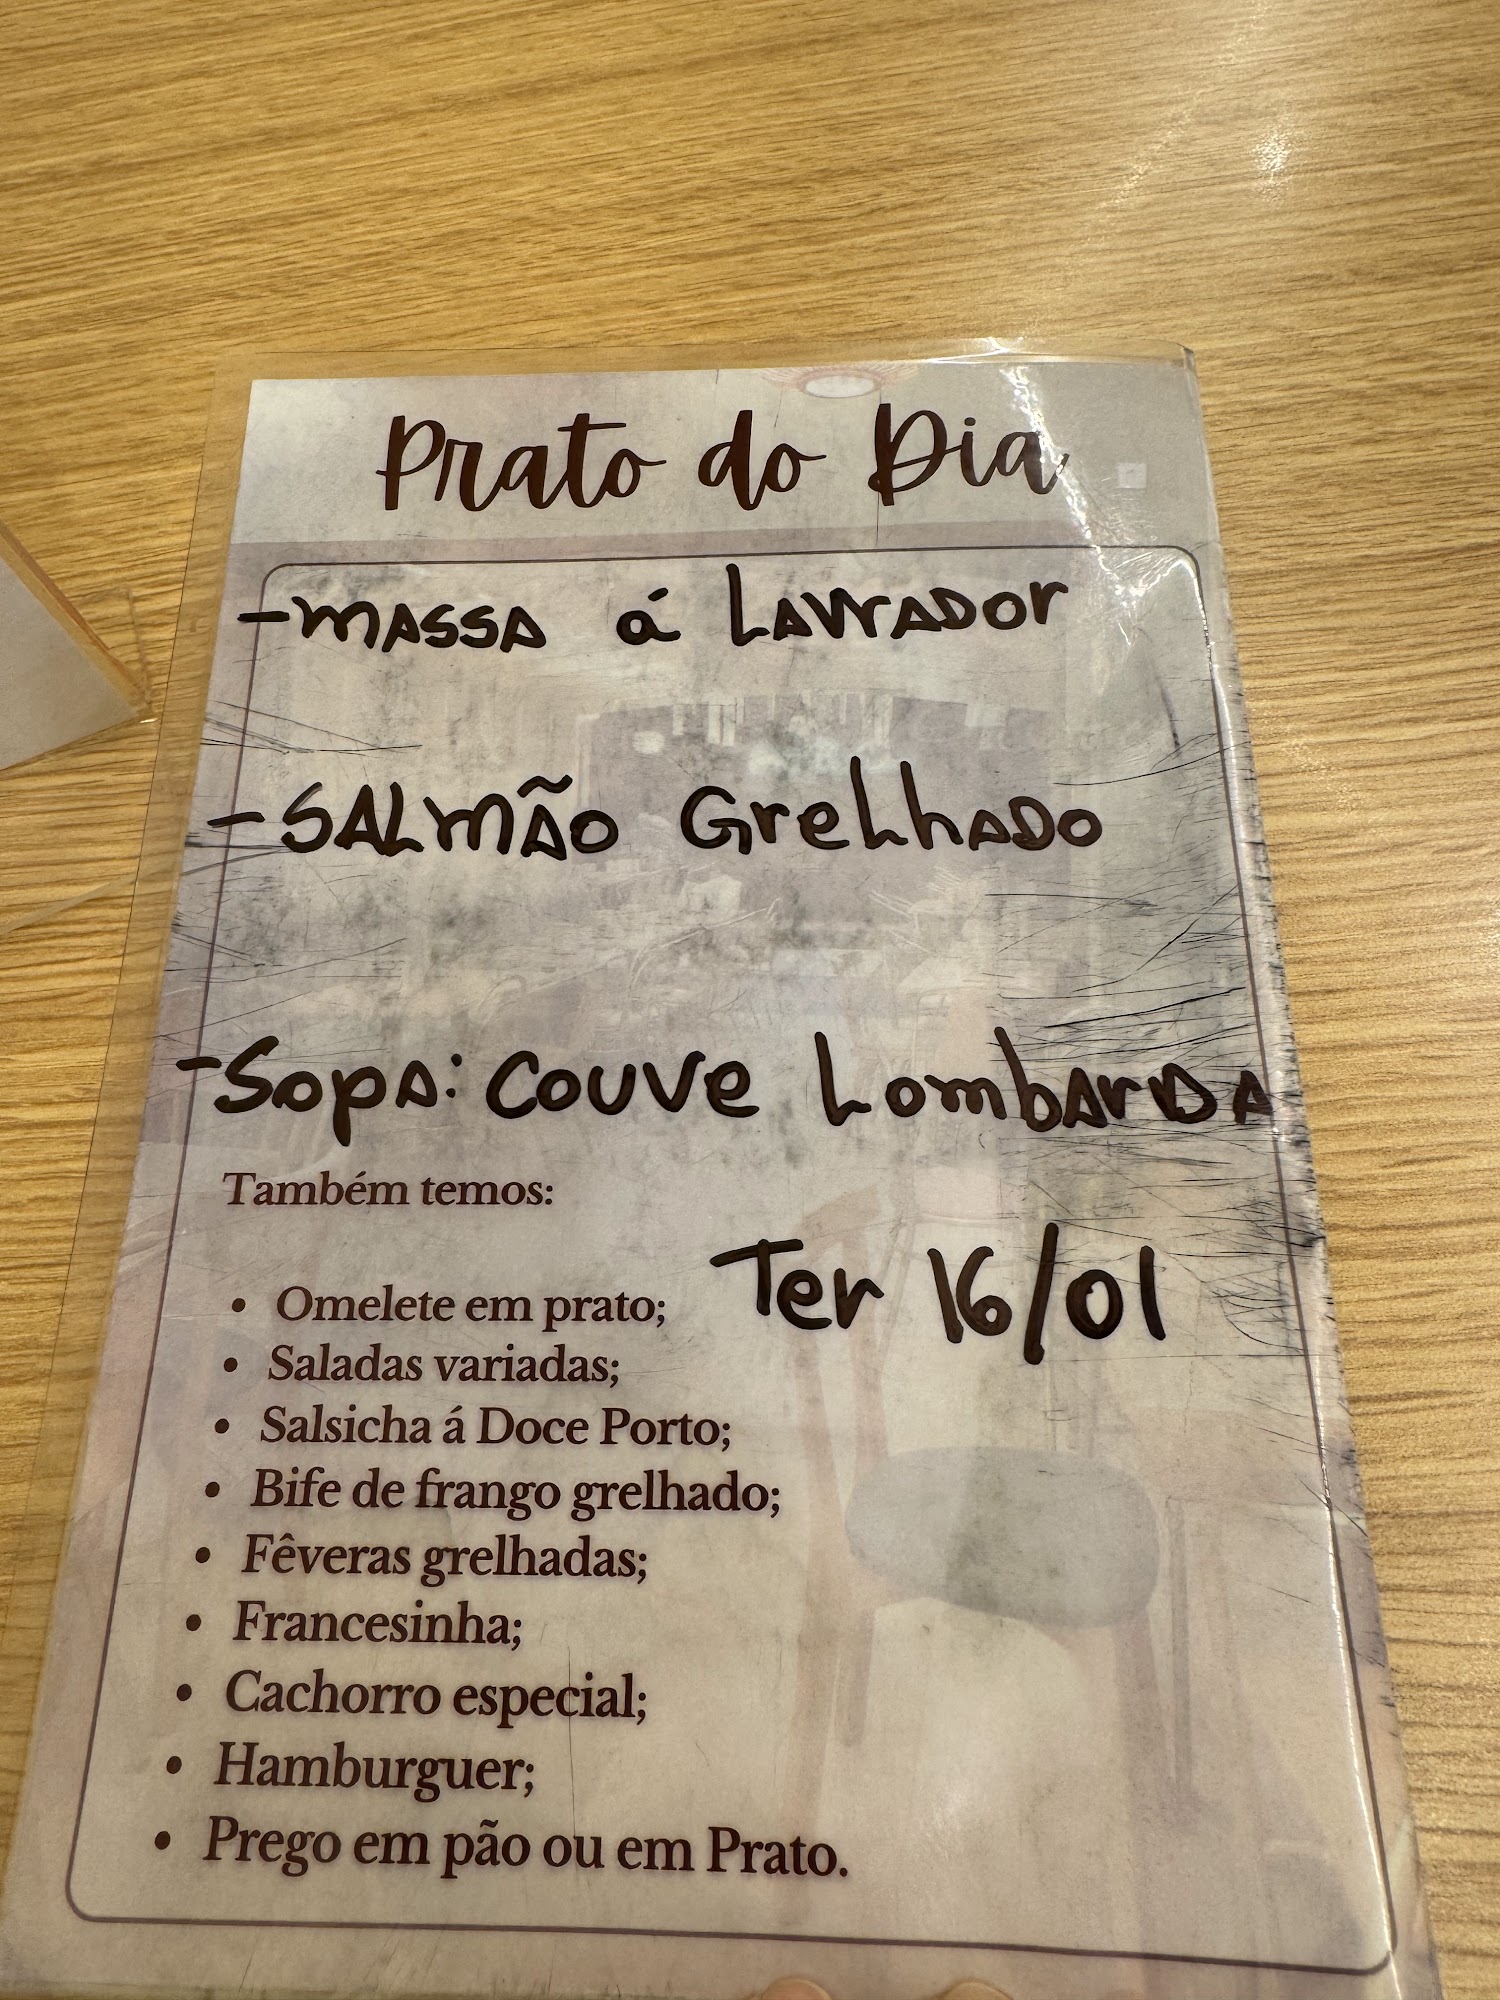 Prato do Dia
- MASSA á LAVRADOR
- SALMÃO GrelhADO
- SopA: Couve LombArDA
Também temos:
Ter 16/01
• Omelete em prato;
• Saladas variadas;
• Salsicha á Doce Porto;
• Bife de frango grelhado;
• Fêveras grelhadas;
• Francesinha;
• Cachorro especial;
• Hamburguer;
• Prego em pão ou em Prato.